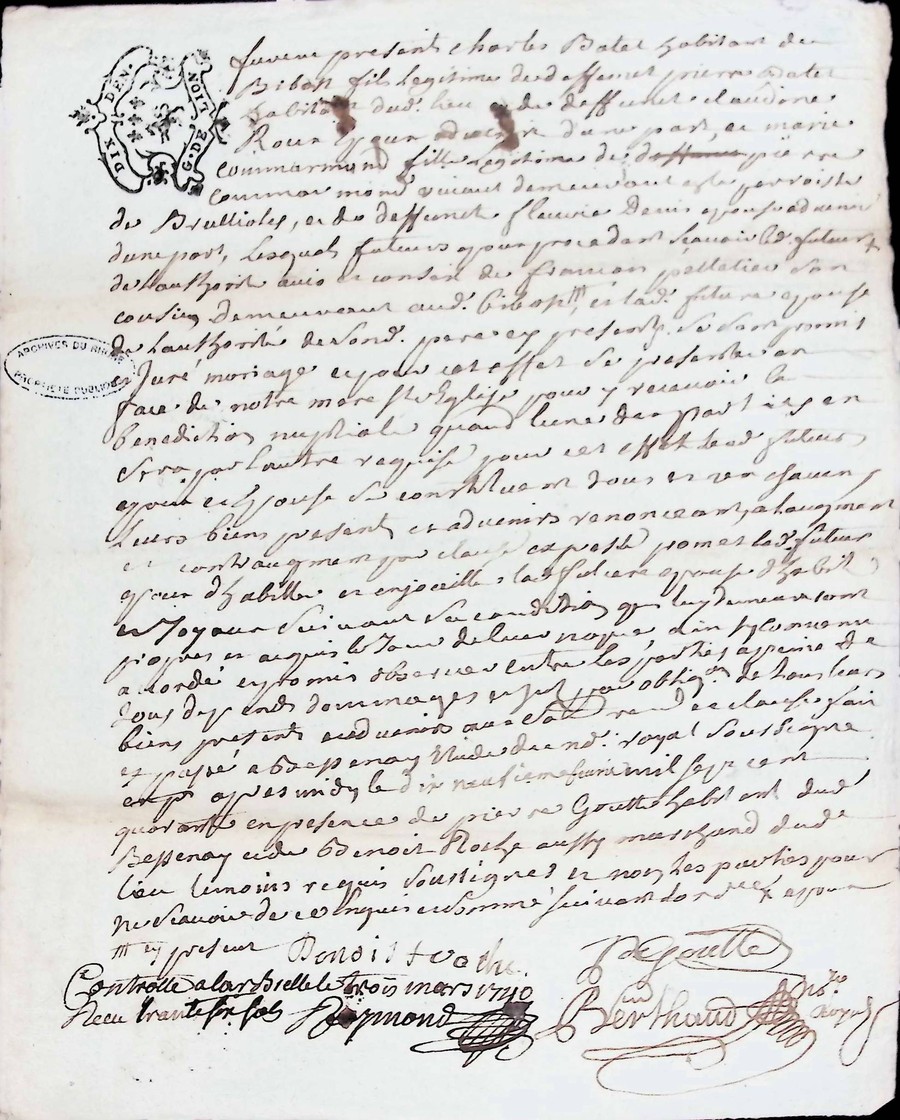 DIX DEN.
G. DE LION
furent presents Charles Batet habitant de
Bibost fils legitime de deffunct pierre Batet
habitant dud. lieu et de deffuncte claudine
Roux Epoux advenir d'une part, et marie
commarmond fille legitime de deffunct pierre
commarmond vivant demeurant en la parroisse
de Brullioles, et de deffuncte fleurie Denis epouse advenir
d'une part, Lesquels futurs epoux procedant scavoir led. futur
de l'authorité avis et conseil de francois pelletier son
cousin demeurant aud. bibost /// et lad. future epouse
de l'authorité de sond. pere cy present. se sont promis
et Juré mariage et pour cet effet se presenter en
face de notre mere Ste Eglise pour y recevoir la
benediction nuptiale quand l'une des parties en
sera par l'autre requise pour cet effet lesd. futurs
epoux et Epouse se constituent tous et un chacun
Leurs biens presents et advenirs renonceants a l'augment
et contraugment par clause expresse promet led. futur
epoux d'habiller et enjoueiller lad. future epouse d'habits
et Joyaux suivant sa condition qui luy demeureront
propres et acquis le Jour de leur nopce ainsy convenu
accordé et promis observer entre les parties a peine de
tous depends dommages et par oblig.on de tous leurs
biens presents et advenirs avec et clauses fait
et passé a Bessenay Etude du no.re royal soussigné
apres midy le dix neufieme mil sept cent
quarante en presence de pierre Goutte habitant dud.
Bessenay et de Benoit Roche aussy marchand dud.
lieu temoins requis soussignes et non les parties pour
ne scavoir de ce enquis et sommé suivant l'ord.ce
/// cy present
Benoit roche
P Goutte
Controllé a larbresle le trois mars 1740
Receu trante six sols Raymond
Berthaud
No.re Royal
ARCHIVES DU RHÔNE
PROPRIÉTÉ PUBLIQUE